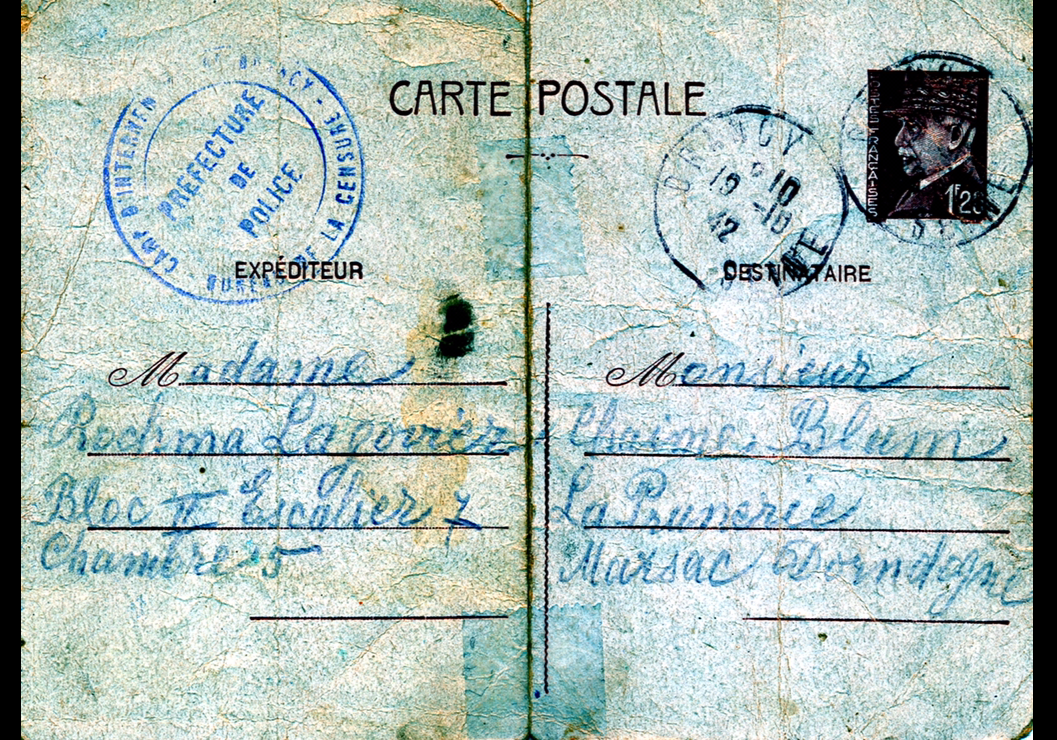 CARTE POSTALE
CAMP D'INTERNEMENT DE DRANCY - BUREAU DE LA CENSURE
PRÉFECTURE
DE
POLICE
DRANCY
19 10
-10
42
POSTES FRANÇAISES
1F20
EXPÉDITEUR
Madame
Rochma
Bloc II Escalier 7
Chambre 5
DESTINATAIRE
Monsieur
Chaime Blum
La
Marsac Dorndogne